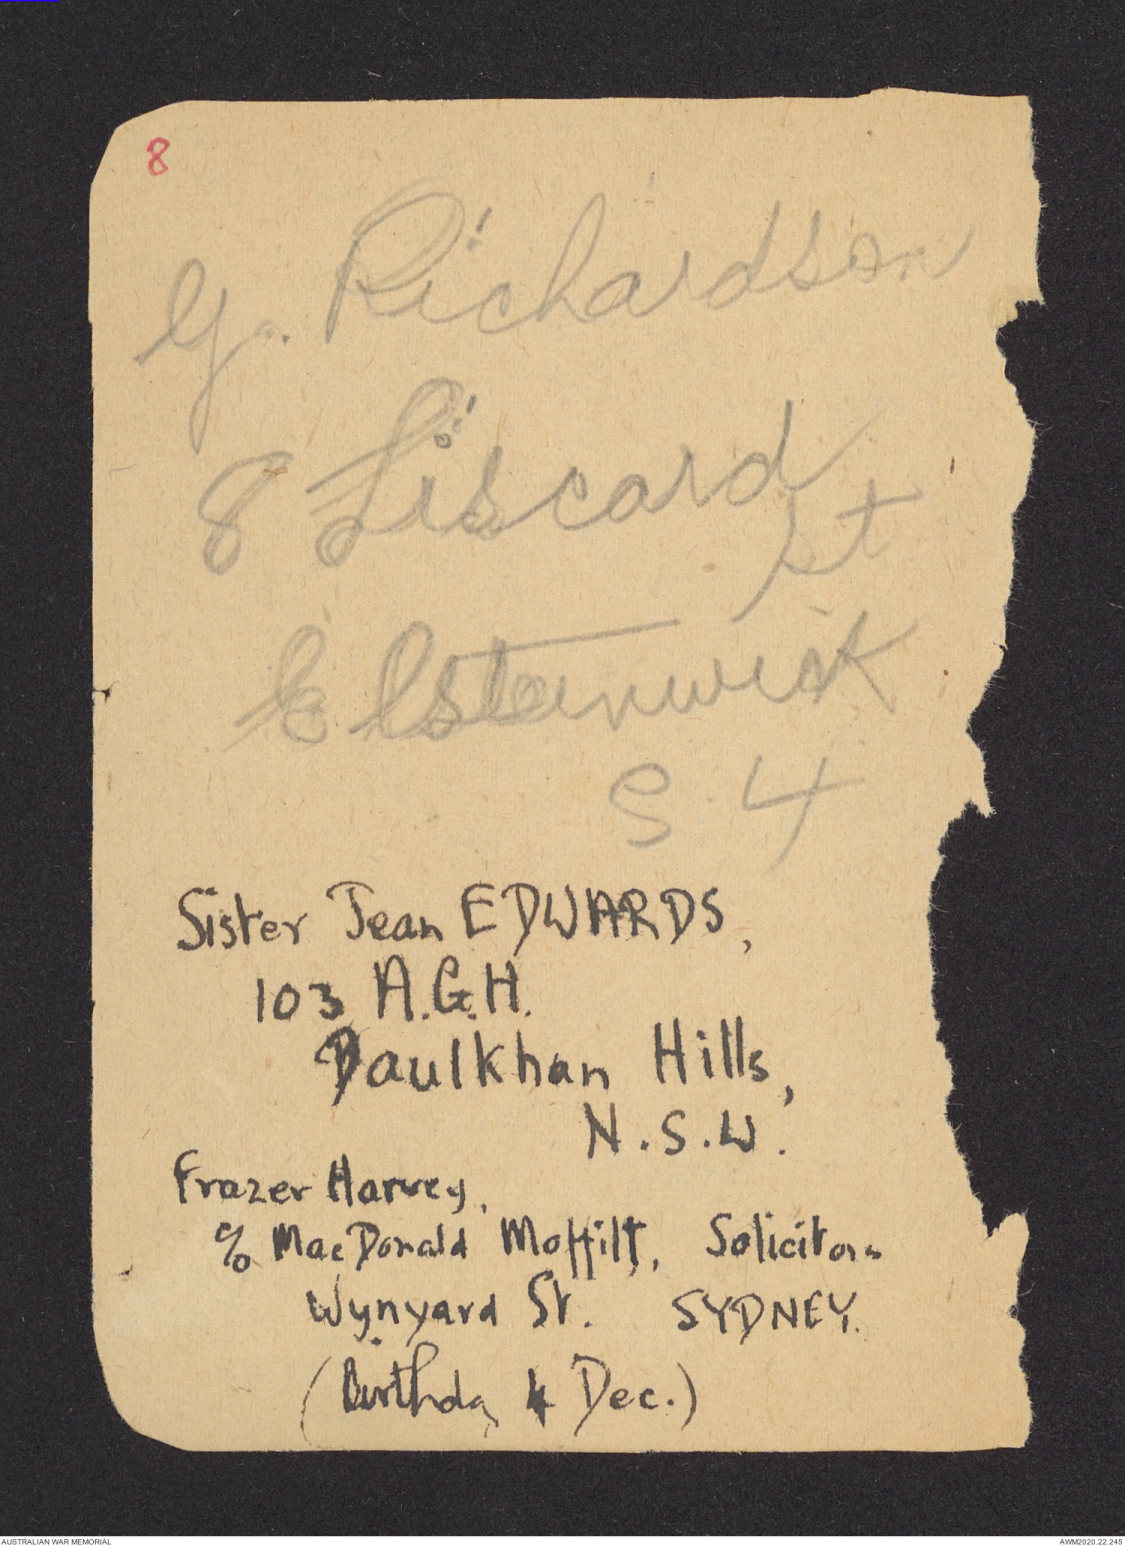 8
G. Richardson
8 Liscard
St
Elsternwick
S. 4
Sister Jean EDWARDS,
103 A.G.H.
Baulkhan Hills,
N.S.W.
Frazer Harvey,
c/o MacDonald Moffitt, Solicitors
Wynyard St. SYDNEY.
(Birthday 4 Dec.)
AUSTRALIAN WAR MEMORIAL
AWM2020.22.245